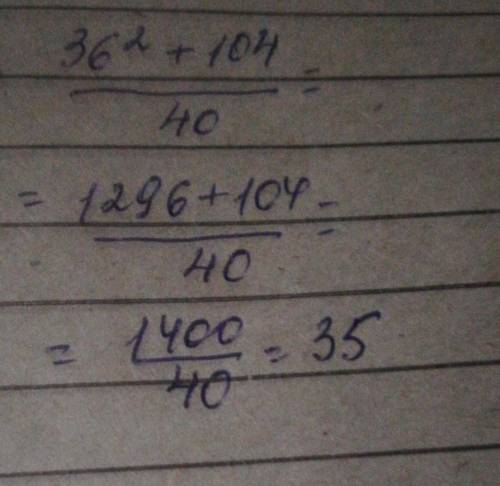 36² + 104
40 =
= 1296 + 104
40 =
= 1400
40 = 35